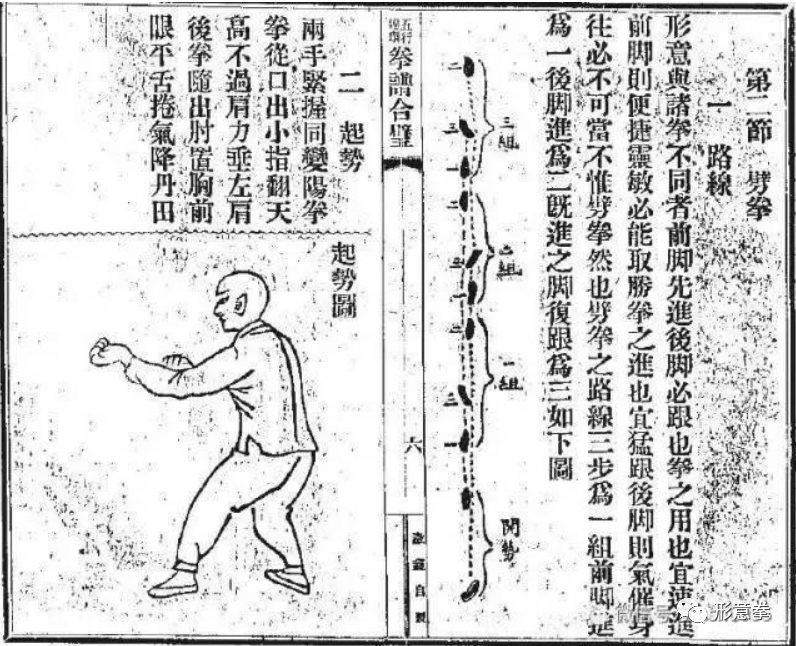 第二節 劈拳
一 路線
形意與諸拳不同者前脚先進後脚必跟也拳之用也宜速進
前脚則便捷靈敏必能取勝拳之進也宜猛跟後脚則氣催身
往必不可當不惟劈拳然也劈拳之路線三步爲一組前脚進
爲一後脚進爲二既進之脚復跟爲三如下圖
三組
二
三
一
二組
二
三
一
一組
二
三
一
開勢
五行連環拳譜合璧
六
自製
二 起勢
兩手緊握同變陽拳
拳從口出小指翻天
高不過肩力垂左肩
後拳隨出肘置胸前
眼平舌捲氣降丹田
起勢圖
微信号
形意拳